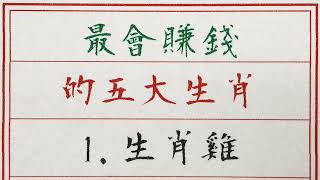 最會賺錢
的五大生肖
1.生肖雞